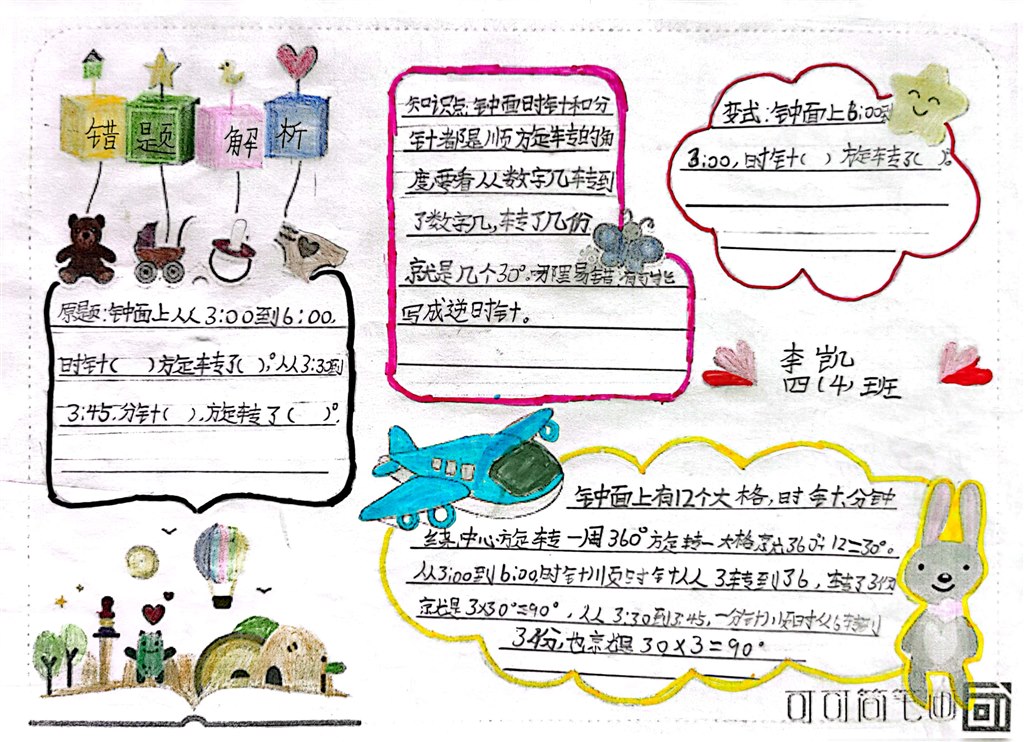 错题解析
原题:钟面上从3:00到6:00,
时针( )方旋车专了( )°,从3:30到
3:45,分针( ),方旋车专了( )°.
知识点:钟面时针和分
针都是顺方旋车专的角
度,要看从数字几车专到
了数字几,车专了几份
就是几个30°.那里易错:有可能
写成逆时针。
变式:钟面上6:00到
3:00,时针( )方旋车专了( )°。
李凯
四(4)班
钟面上有12个大格,时针大分钟
绕中心方旋车专一周360°方旋转一大格就是360°÷12=30°。
从3:00到6:00时针顺时针从3车专到了6,车专了3份
就是3×30°=90°,从3:30到3:45,分针顺时从6车专到
3份,也就是30×3=90°
可可简笔画